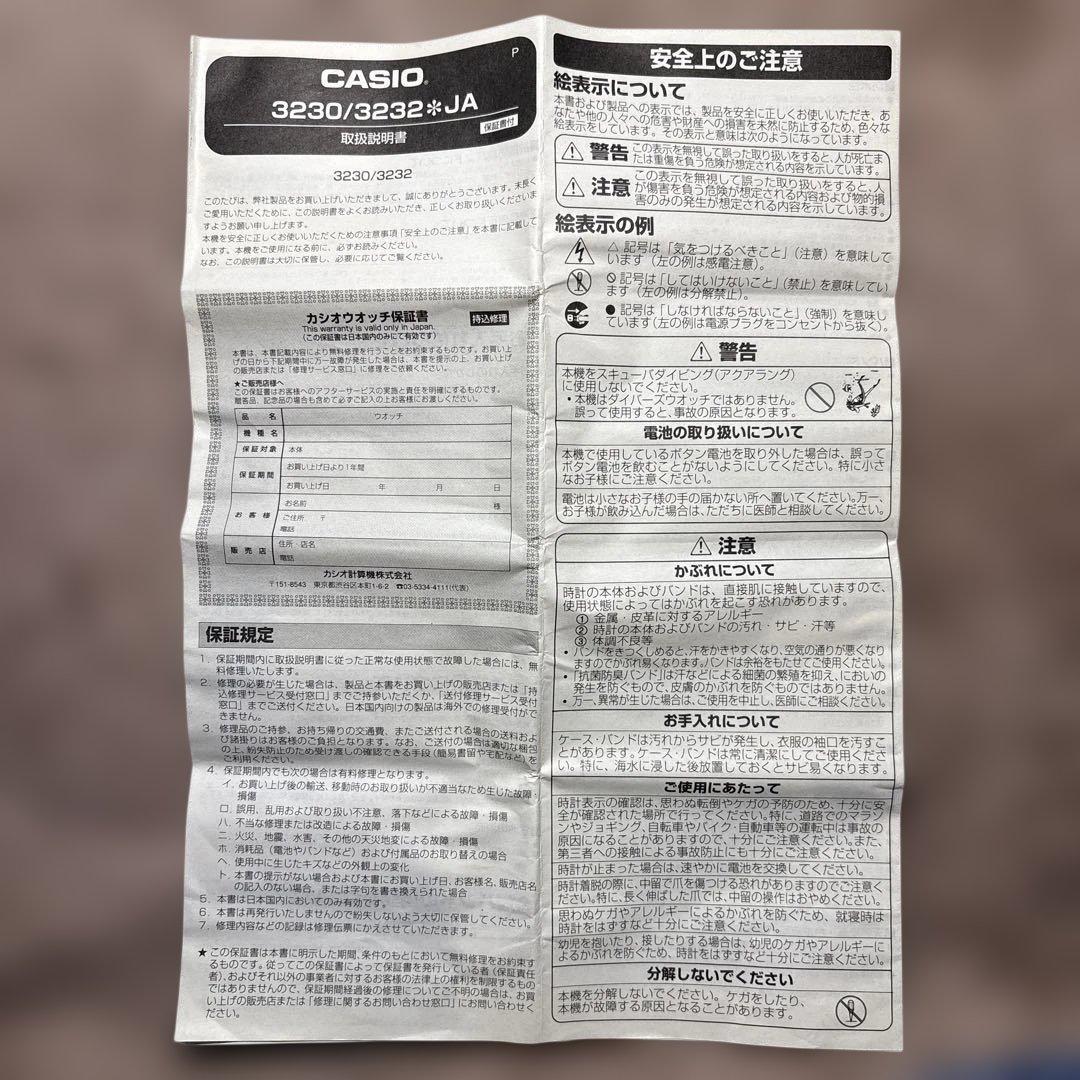 P
CASIO
3230/3232✽JA
取扱説明書
保証書付
3230/3232
このたびは、弊社製品をお買い上げいただきまして、誠にありがとうございます。末長く
ご愛用いただくために、この説明書をよくお読みいただき、正しくお取り扱いくださいま
すようお願い申し上げます。
本機を安全に正しくお使いいただくための注意事項「安全上のご注意」を本書に記載して
います。本機をご使用になる前に、必ずお読みください。
なお、この説明書は大切に保管し、必要に応じてご覧ください。
カシオウオッチ保証書
持込修理
This warranty is valid only in Japan.
(この保証書は日本国内のみにて有効です)
本書は、本書記載内容により無料修理を行うことをお約束するものです。お買い上
げの日から下記期間中に万一故障が発生した場合は、本書を提示の上、お買い上げ
の販売店または「修理サービス窓口」に修理をご依頼ください。
★ご販売店様へ
この保証書はお客様へのアフターサービスの実施と責任を明確にするものです。
贈答品、記念品の場合も含めて必ずご記入の上お客様にお渡しください。
品名 ウオッチ
機種名
保証対象 本体
保証期間 お買い上げ日より1年間
お買い上げ日 年 月 日
お客様 お名前 様
ご住所 〒
電話
販売店 住所・店名
電話
カシオ計算機株式会社
〒151-8543 東京都渋谷区本町1-6-2 ☎03-5334-4111(代表)
保証規定
1. 保証期間内に取扱説明書に従った正常な使用状態で故障した場合には、無
料修理いたします。
2. 修理の必要が生じた場合は、製品と本書をお買い上げの販売店または「持
込修理サービス受付窓口」までご持参いただくか、「送付修理サービス受付
窓口」までご送付ください。日本国内向けの製品は海外での修理受付がで
きません。
3. 修理品のご持参、お持ち帰りの交通費、またご送付される場合の送料およ
び諸掛りはお客様のご負担となります。なお、ご送付の場合は適切な梱包
の上、紛失防止のため受け渡しの確認できる手段(簡易書留や宅配など)を
ご利用ください。
4. 保証期間内でも次の場合は有料修理となります。
イ. お買い上げ後の輸送、移動時のお取り扱いが不適当なため生じた故障・
損傷
ロ. 誤用、乱用および取り扱い不注意、落下などによる故障・損傷
ハ. 不当な修理または改造による故障・損傷
ニ. 火災、地震、水害、その他の天災地変による故障・損傷
ホ. 消耗品(電池やバンドなど)および付属品のお取り替えの場合
ヘ. 使用中に生じたキズなどの外観上の変化
ト. 本書の提示がない場合および本書にお買い上げ日、お客様名、販売店名
の記入のない場合、または字句を書き換えられた場合
5. 本書は日本国内においてのみ有効です。
6. 本書は再発行いたしませんので紛失しないよう大切に保管してください。
7. 修理内容などの記録は修理伝票にかえさせていただきます。
★この保証書は本書に明示した期間、条件のもとにおいて無料修理をお約束す
るものです。従ってこの保証書によって保証書を発行している者(保証責任
者)、およびそれ以外の事業者に対するお客様の法律上の権利を制限するもの
ではありませんので、保証期間経過後の修理についてご不明の場合は、お買
い上げの販売店または「修理に関するお問い合わせ窓口」にお問い合わせく
ださい。
安全上のご注意
絵表示について
本書および製品への表示では、製品を安全に正しくお使いいただき、あ
なたや他の人々への危害や財産への損害を未然に防止するため、色々な
絵表示をしています。その表示と意味は次のようになっています。
警告 この表示を無視して誤った取り扱いをすると、人が死亡ま
たは重傷を負う危険が想定される内容を示しています。
注意 この表示を無視して誤った取り扱いをすると、人
が傷害を負う危険が想定される内容および物的損
害のみの発生が想定される内容を示しています。
絵表示の例
△ 記号は「気をつけるべきこと」(注意)を意味して
います(左の例は感電注意)。
⃠ 記号は「してはいけないこと」(禁止)を意味してい
ます(左の例は分解禁止)。
● 記号は「しなければならないこと」(強制)を意味し
ています(左の例は電源プラグをコンセントから抜く)。
⚠ 警告
本機をスキューバダイビング(アクアラング)
に使用しないでください。
• 本機はダイバーズウオッチではありません。
誤って使用すると、事故の原因となります。
電池の取り扱いについて
本機で使用しているボタン電池を取り外した場合は、誤って
ボタン電池を飲むことがないようにしてください。特に小さ
なお子様にご注意ください。
電池は小さなお子様の手の届かない所へ置いてください。万一、
お子様が飲み込んだ場合は、ただちに医師と相談してください。
⚠ 注意
かぶれについて
時計の本体およびバンドは、直接肌に接触していますので、
使用状態によってはかぶれを起こす恐れがあります。
① 金属・皮革に対するアレルギー
② 時計の本体およびバンドの汚れ・サビ・汗等
③ 体調不良等
• バンドをきつくしめると、汗をかきやすくなり、空気の通りが悪くなり
ますのでかぶれ易くなります。バンドは余裕をもたせてご使用ください。
• 「抗菌防臭バンド」は汗などによる細菌の繁殖を抑え、においの
発生を防ぐもので、皮膚のかぶれを防ぐものではありません。
• 万一、異常が生じた場合は、ご使用を中止し、医師にご相談ください。
お手入れについて
ケース・バンドは汚れからサビが発生し、衣服の袖口を汚すこ
とがあります。ケース・バンドは常に清潔にしてご使用くださ
い。特に、海水に浸した後放置しておくとサビ易くなります。
ご使用にあたって
時計表示の確認は、思わぬ転倒やケガの予防のため、十分に安
全が確認された場所で行ってください。特に、道路でのマラソ
ンやジョギング、自転車やバイク・自動車等の運転中は事故の
原因になることがありますので、十分にご注意ください。また、
第三者への接触による事故防止にも十分にご注意ください。
時計が止まった場合は、速やかに電池を交換してください。
時計着脱の際に、中留で爪を傷つける恐れがありますのでご注意く
ださい。特に、長く伸ばした爪では、中留の操作はおやめください。
思わぬケガやアレルギーによるかぶれを防ぐため、就寝時は
時計をはずすなど十分にご注意ください。
幼児を抱いたり、接したりする場合は、幼児のケガやアレルギーに
よるかぶれを防ぐため、時計をはずすなど十分にご注意ください。
分解しないでください
本機を分解しないでください。ケガをしたり、
本機が故障する原因となることがあります。